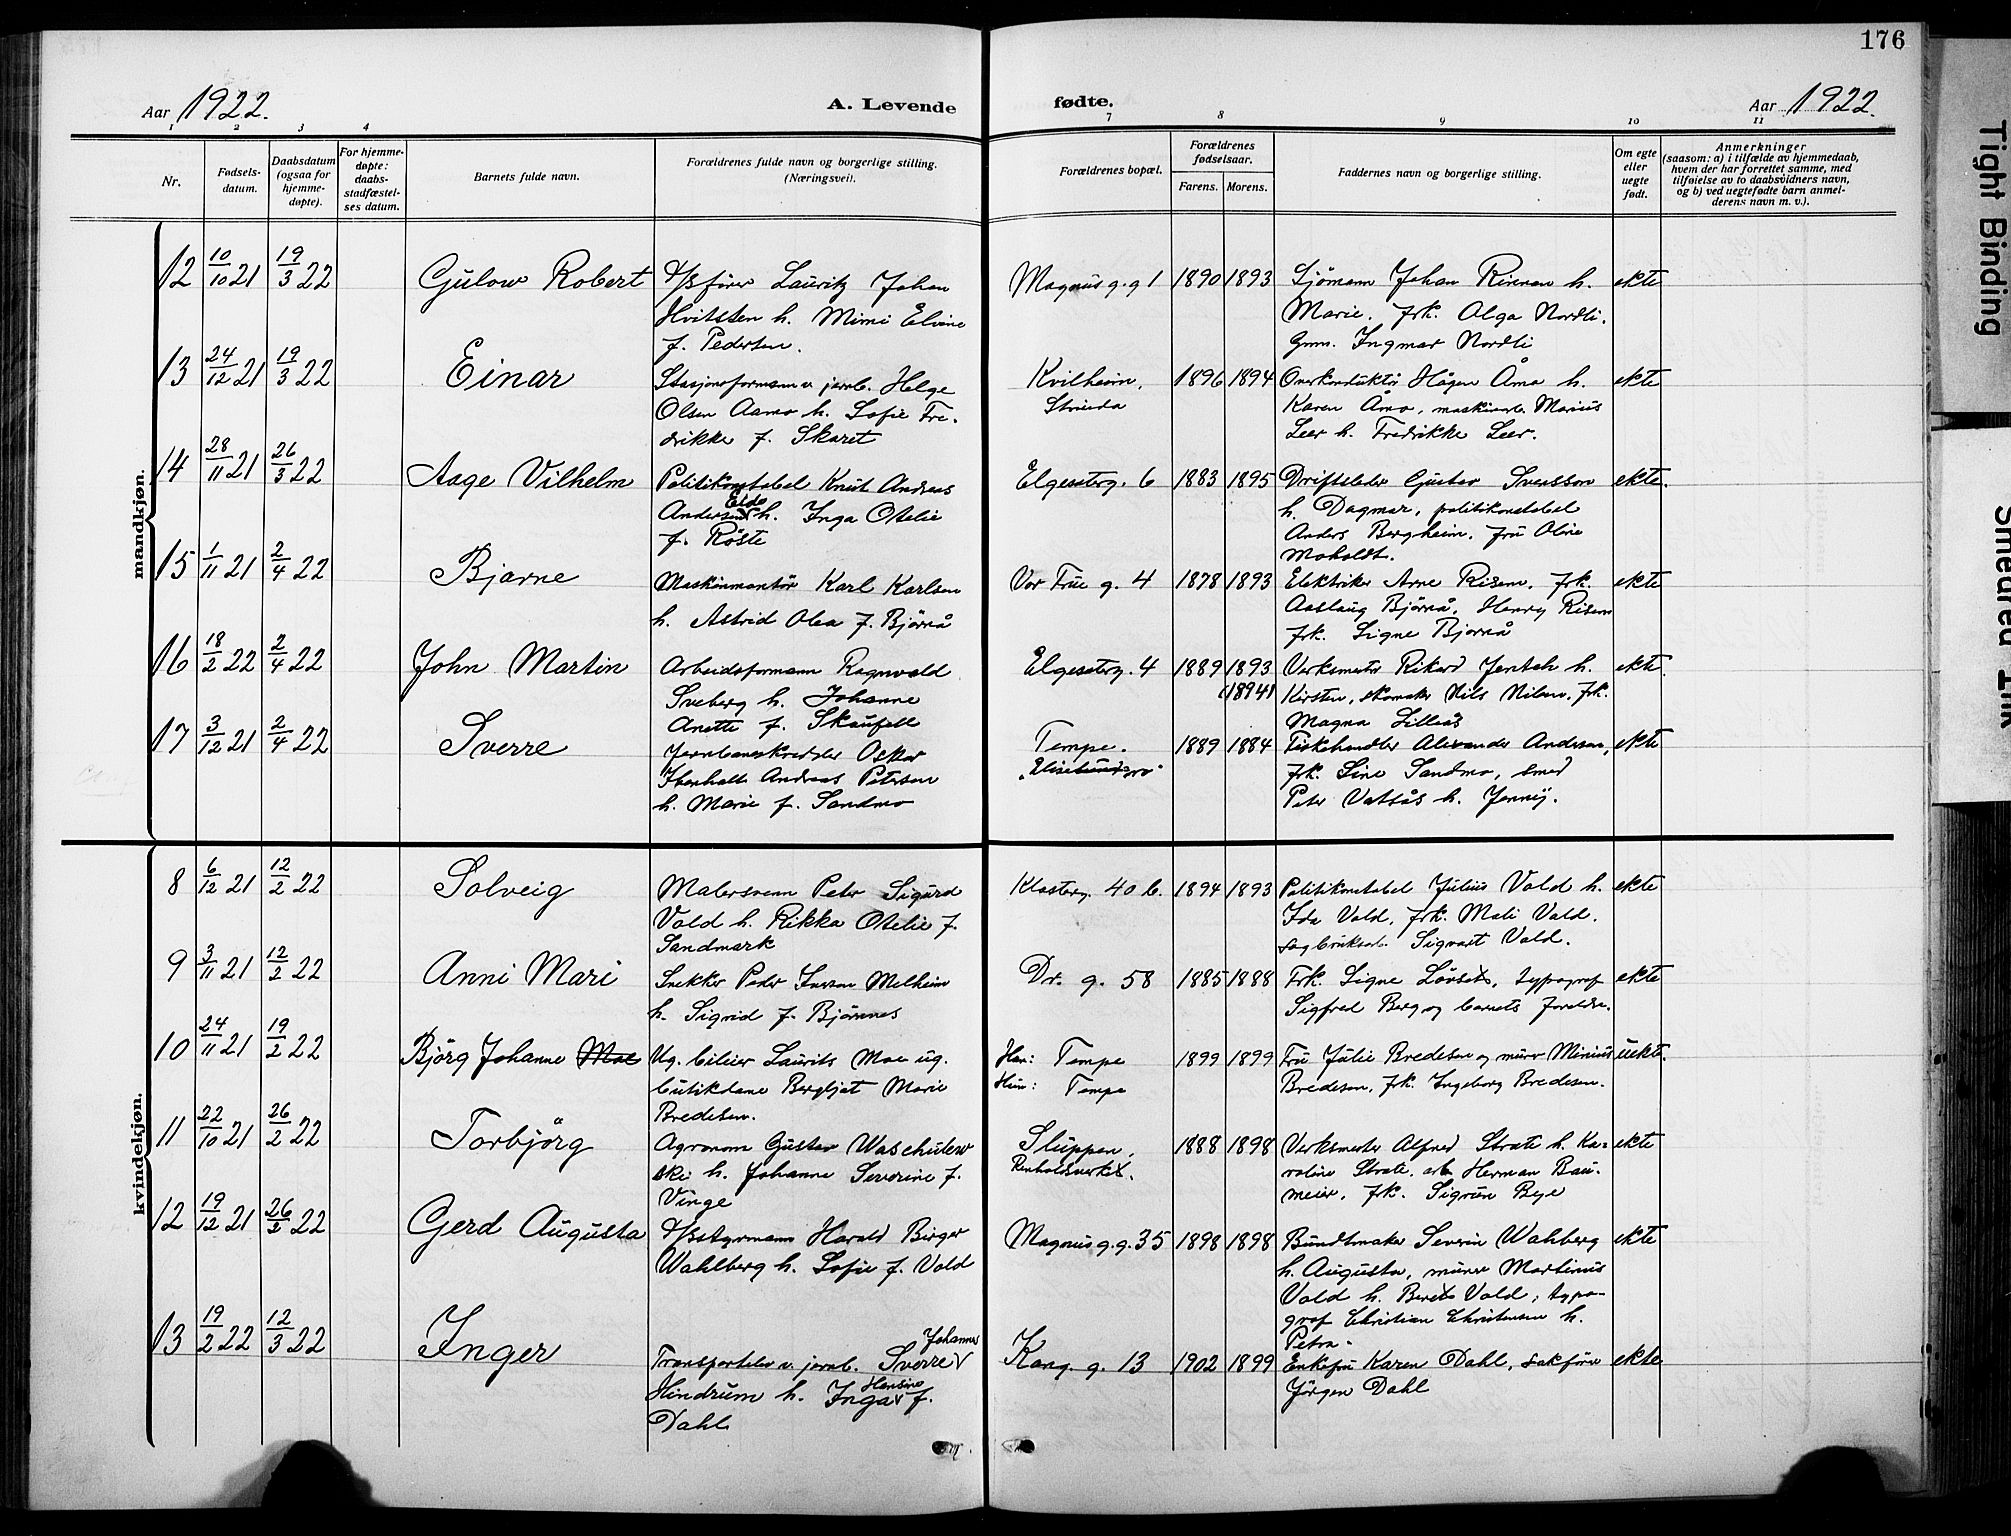 176
Aar 1922. A. Levende fødte. Aar 1922.
1 2 3 4 7 8 9 10 11
Nr.
Fødsels-
datum.
Daabsdatum
(ogsaa for
hjemme-
døpte).
For hjemme-
døpte:
daabs-
stadfæstel-
ses datum.
Barnets fulde navn.
Forældrenes fulde navn og borgerlige stilling.
(Næringsvei).
Forældrenes bopæl.
Forældrenes
fødselsaar.
Farens. Morens.
Faddernes navn og borgerlige stilling.
Om egte
eller
uegte
født.
Anmerkninger
(saasom: a) i tilfælde av hjemmedaab,
hvem der har forrettet samme, med
tilføielse av to daabsvidners navn,
og b) ved uegtefødte barn anmel-
derens navn m. v.).
mandkjøn.
12 10/10 21 19/3 22 Gulow Robert
fører Lauritz Johan
Hvitsten h. Mimi Elvine
f. Pedersen.
Magnus g. g 1 1890 1893
Sjømann Johan Rinnan h.
Marie. frk. Olga Nordli.
Ingmar Nordli
ekte
13 24/12 21 19/3 22 Einar
Stasjonsformann v. jernb. Helge
Olsen Aamo h. Sofie Fre-
drikke f. Skaret
Kvilheim,
Strinda
1896 1894
Overkonduktør Hågen Åmo h.
Karen Åmo, Marius
Leer h. Fredrikke Leer.
ekte
14 28/11 21 26/3 22 Aage Vilhelm
Politikonstabel Knut Andreas
Andersen Eldø h. Inga Otelie
f. Røste
Elgeseterg. 6 1883 1895
Driftsleder Gustav Svensson
h. Dagmar, politikonstabel
Anders Bergheim. fru Oline
Moholdt.
ekte.
15 1/11 21 2/4 22 Bjarne
Maskinmontør Karl Karlsen
h. Astrid Olea f. Bjørnå
Vor Frue g. 4 1878 1893
Elektriker Arne Risem, frk.
Aaslaug Bjørnå, Henry Risem
frk. Signe Bjørnå
ekte
16 18/2 22 2/4 22 John Martin
Arbeidsformann Ragnvald
Sveberg h. Johanne
Anette f. Skaufell
Elgeseterg. 4 1889 1893
(1894)
Verksmester Rikard Jentoh h.
Kirsten, skomaker Nils Nilsen, frk.
Magna Lilleås
ekte.
17 3/12 21 2/4 22 Sverre
Jernbaneskredder Oskar
Ibenholt Andreas Petersen
h. Marie f. Sandmo
Tempe.
1889 1884
Fiskehandler Alexander Andersen,
frk. Line Sandmo, smed
Peter Vatsås h. Jenny.
ekte
kvindekjøn.
8 6/12 21 12/2 22 Solveig
Malersvenn Peter Sigurd
Vold h. Rikka Otelie f.
Sandmark
Klosterg. 40 b. 1894 1893
Politikonstabel Julius Vold h.
Ida Vold, frk. Mali Vold.
sagbruksarb. Sigvart Vold.
ekte
9 3/11 21 12/2 22 Anni Mari
Snekker Peder Iverson Melheim
h. Sigrid f. Bjørnnes
Dr. g. 58 1885 1888
Frk. Signe Løvseth, typograf
Sigfred Berg og barnets foreldre.
ekte
10 24/11 21 19/2 22 Bjørg Johanne Moe
Ug. bileier Laurits Moe ug.
butikdame Bergljot Marie
Bredesen.
Han: Tempe
Hun: Tempe
1899 1899
Fru Julie Bredesen og murer Minius
Bredesen, frk. Ingeborg Bredesen.
uekte.
11 22/10 21 26/2 22 Torbjørg
Agronom Gustav Waschulew
ski h. Johanne Severine f.
Vinge
Sluppen,
Renholdsverket.
1888 1898
Verksmester Alfred Strate h. Ka-
roline Strate. arb Herman Bau-
meier, frk. Sigrun Bye
ekte
12 19/12 21 26/2 22 Gerd Augusta
Harald Birger
Wahlberg h. Sofie f. Vold
Magnus g. g. 35 1898 1898
Bundtmaker Severin Wahlberg
h. Augusta, murer Martinus
Vold h. Beret Vold, typo-
graf Christian Christensen h.
Petra.
ekte
13 19/2 22 12/3 22 Inger
Transportelev v. jernb. Sverre Johannes
Hindrum h. Inga Hansine f.
Dahl
Kong. g. 13 1902 1899
Enkefru Karen Dahl, sakfører
Jørgen Dahl
ekte
Tight Binding
Smeared Ink